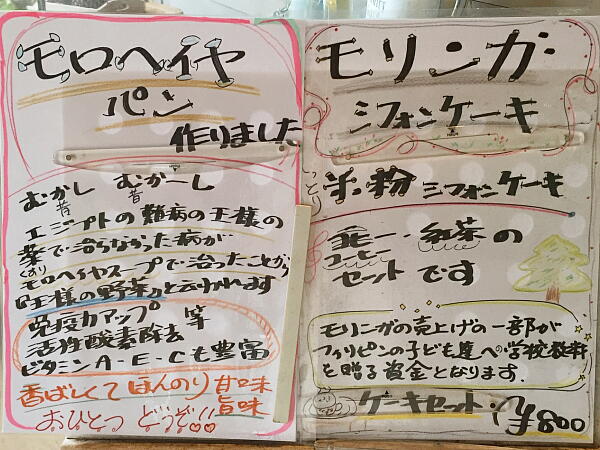 モロヘイヤ
パン
作りました
むかし むかーし
昔 昔
エジプトの難病の王様の
薬で治らなかった病が
くすり
モロヘイヤスープで治ったことから
『王様の野菜』と云われます
免疫力アップ 等
活性酸素除去
ビタミンA・E・Cも豊富
香ばしくてほんのり甘口味
旨味
おひとつ どうぞ!!
モリンガ
シフォンケーキ
しっとり
米粉シフォンケーキ
珈琲・紅茶の
コーヒー
セットです
モリンガの売上げの一部が
フィリピンの子ども達へ学校教材
を贈る資金となります.
ケーキセット:¥800